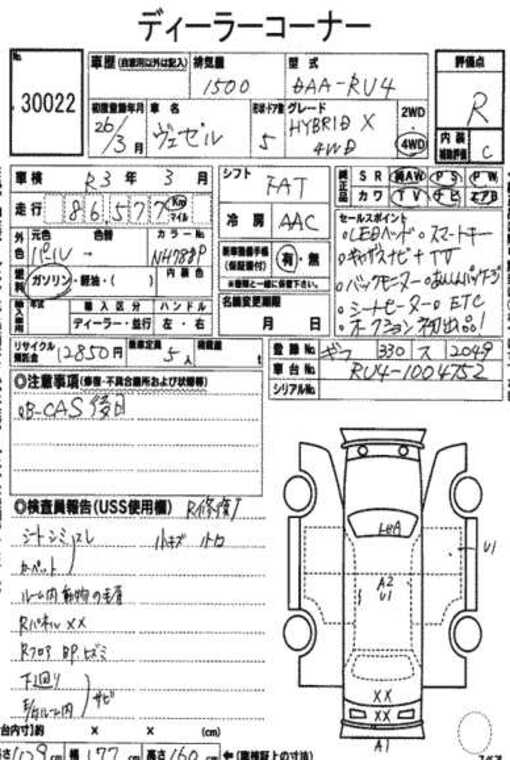 ディーラーコーナー
No.
30022
車歴 (自家用以外は記入)
排気量
1500
型式
DAA-RU4
評価点
R
初度登録年月
26/3月
車名
ヴェゼル
形状・ドア数
5
グレード
HYBRID X
4WD
2WD
4WD
内装
補助評価
C
車検 R3年 3月
走行 86,577 Km マイル
シフト
FAT
冷房 AAC
純正品
SR 純AW PS PW
カワ TV ナビ エアB
外色
元色 色替
パール -
カラーNo
NH788P
燃料
ガソリン・軽油・( )
内装色
新車整備手帳
(保証書付)
有・無
※書類と一緒に保管下さい。
セールスポイント
・LEDヘッド ・スマートキー
・ギャザズナビ+TV
・バックモニター ・あんしんパッケージ
・シートヒーター ・ETC
・オークション初出品!
輸入車用
年式 輸入区分 ハンドル
ディーラー・並行 左・右
名義変更期限
月 日
リサイクル
預託金
12850円
乗車定員 5人
積載量 t
登録No. ギフ 330 ス 2049
車台No. RU4-1004752
シリアルNo.
◎注意事項(修復・不具合箇所および状態等)
・B-CAS後日
◎検査員報告(USS使用欄) R修復有
シートシミ、スレ 小キズ 小凹
カーペット
ルーム内動物の毛有
Rパネル××
Rフロア BP.ヒズミ
下廻り
E/gルーム内 サビ
U1
A2
U1
××
××
A1
荷台内寸)約 × × (cm)
長さ 429 cm 幅 177 cm 高さ 160 cm ←(車検証上の寸法)
スペア